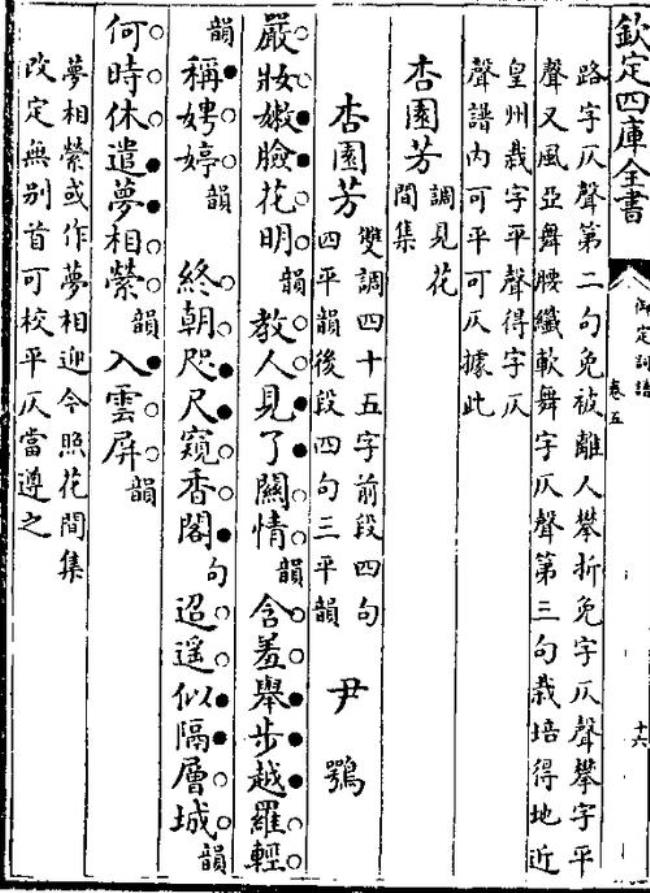 欽定四庫全書
御定詞譜
卷五
十六
路字仄聲第二句免被離人攀折免字仄聲攀字平
聲又風亞舞腰纖軟舞字仄聲第三句栽培得地近
皇州栽字平聲得字仄
聲譜内可平可仄據此
杏園芳
調見花
間集
杏園芳
雙調四十五字前段四句
四平韻後段四句三平韻
尹鶚
嚴妝嫩臉花明韻 教人見了關情韻 含羞舉步越羅輕
韻 稱娉婷韻 終朝咫尺窺香閣句 迢遥似隔層城韻
何時休遣夢相縈韻 入雲屏韻
夢相縈或作夢相迎今照花間集
改定無别首可校平仄當遵之